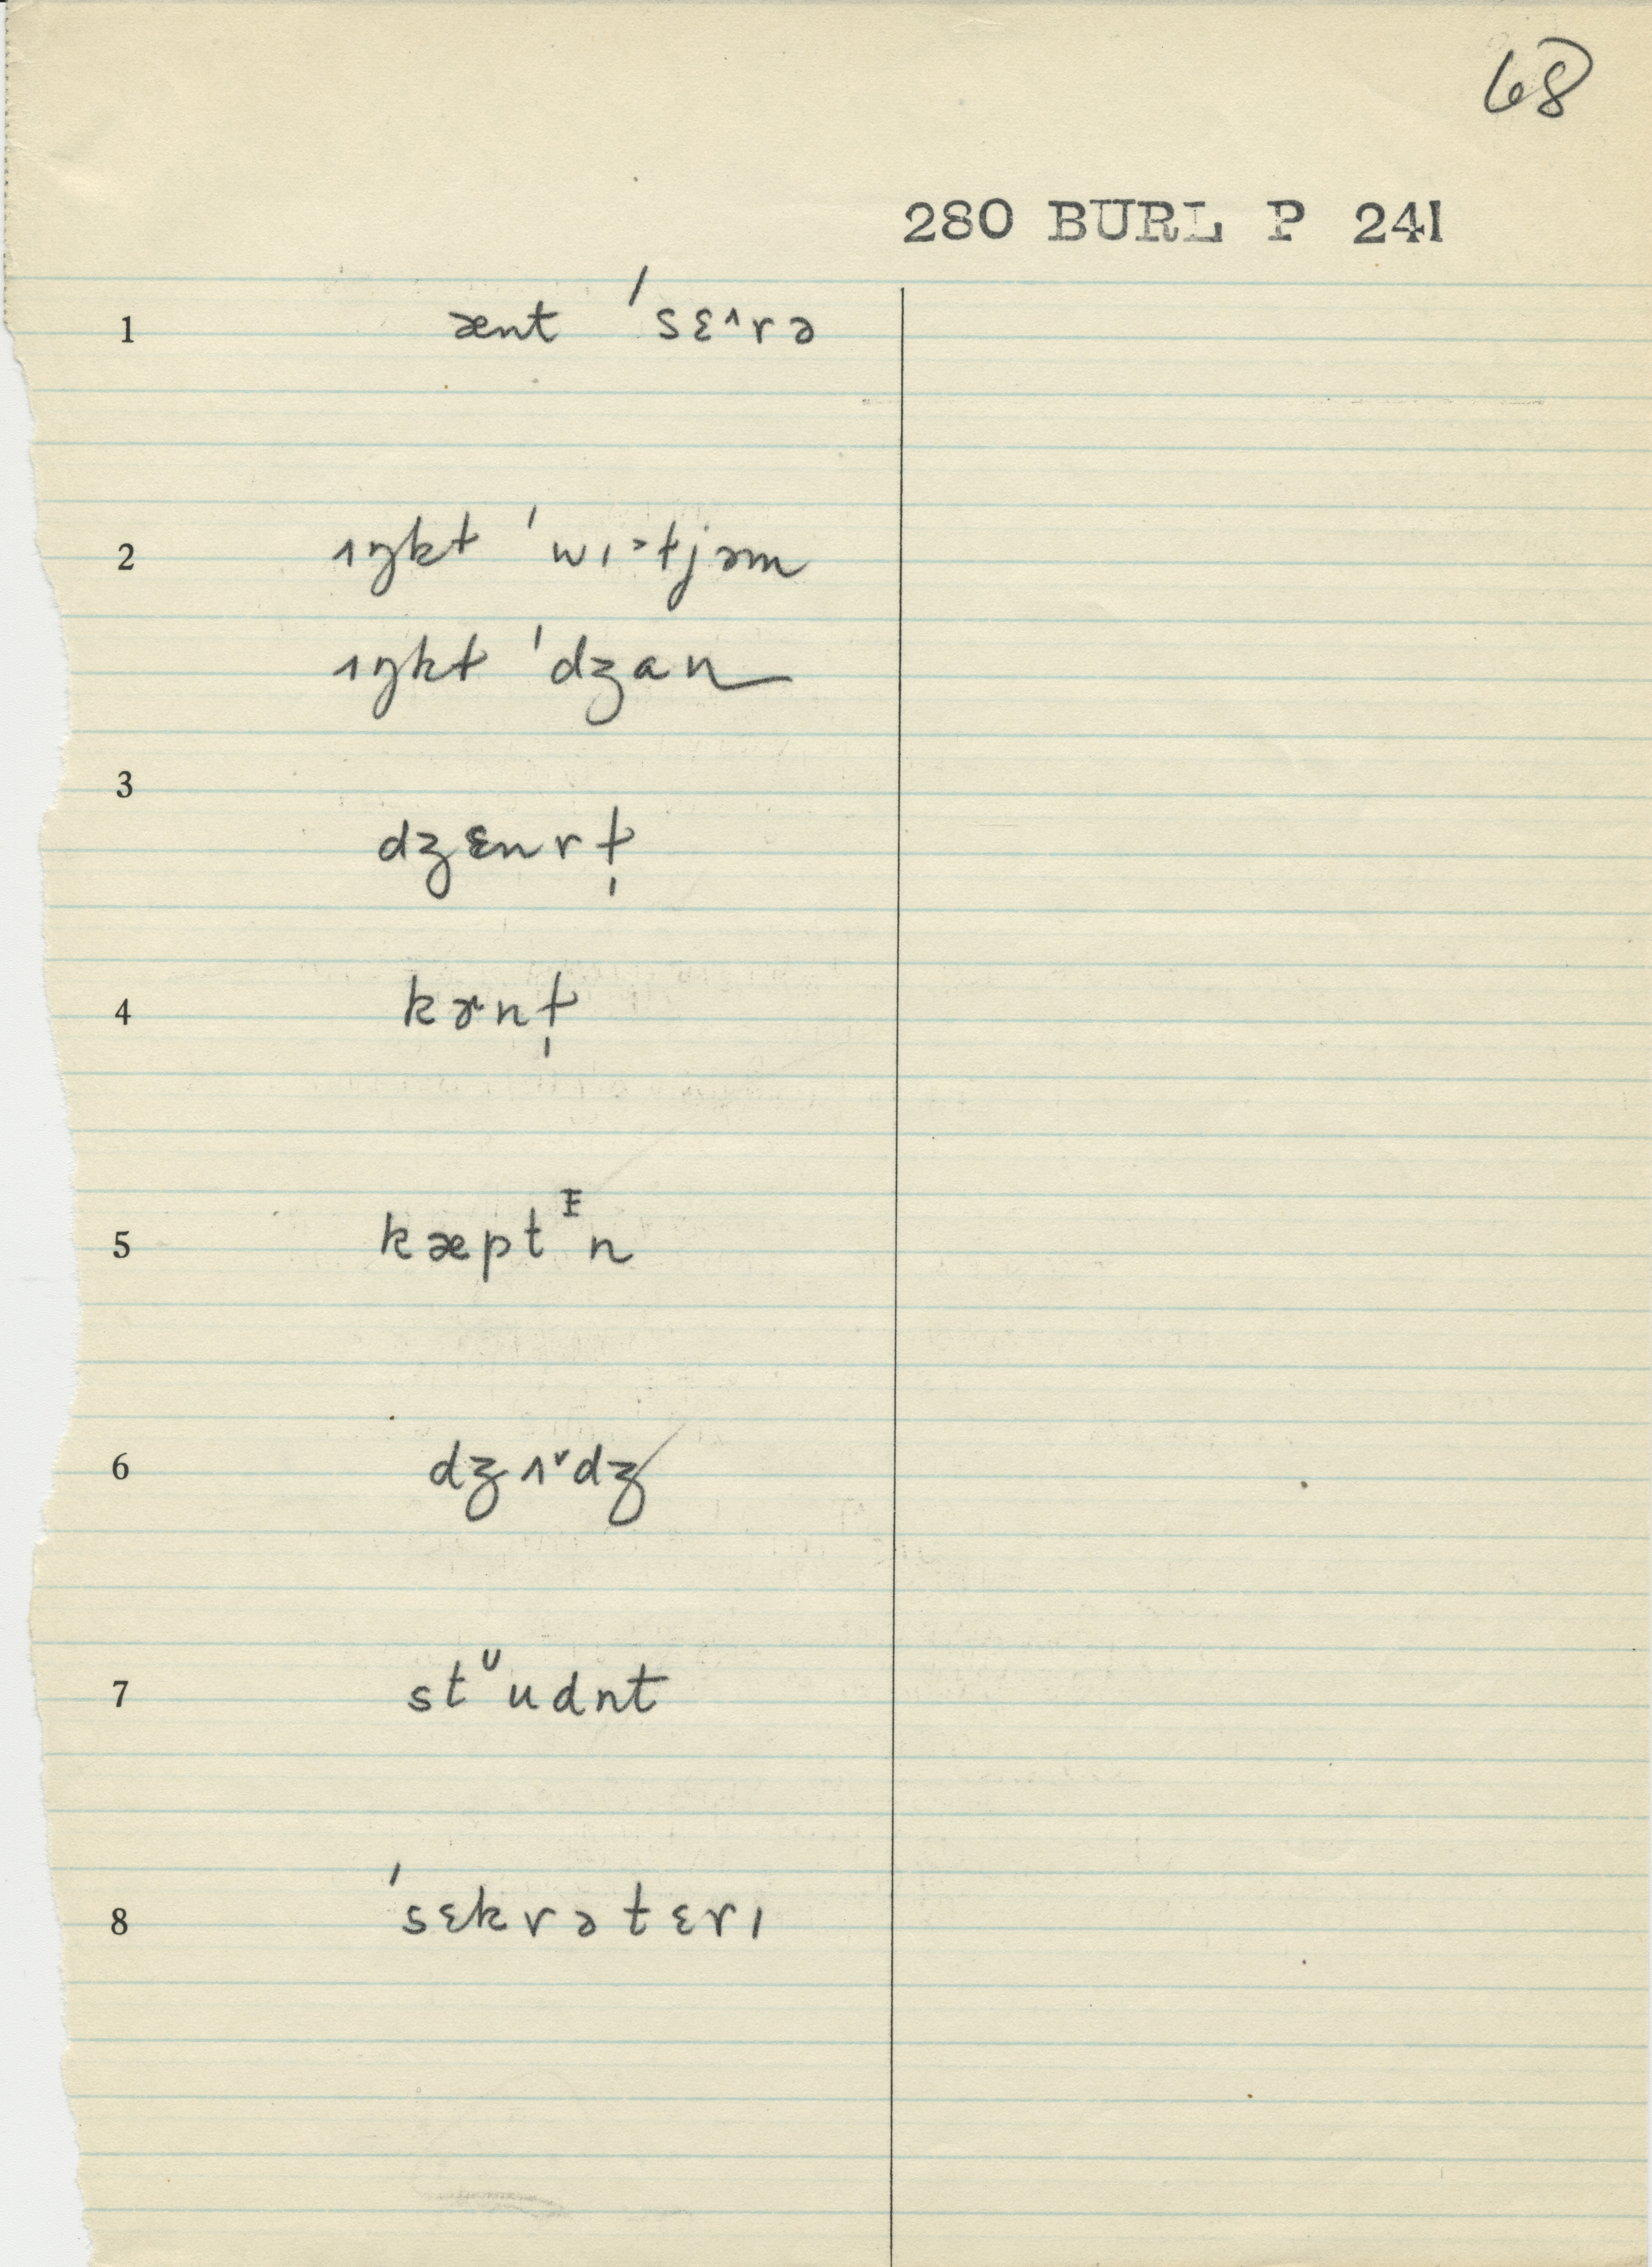 68
280 BURL P 241
1 ænt ˈsɛ^rə
2 ʌŋkɫ ˈwɪ˃ɫjəm
ʌŋkɫ ˈdʒan
3 dʒɛnrɫ̩
4 kɚnɫ̩
5 kæptᴵn
6 dʒʌ˅dʒ
7 stᶸudnt
8 ˈsɛkrətɛrɪ